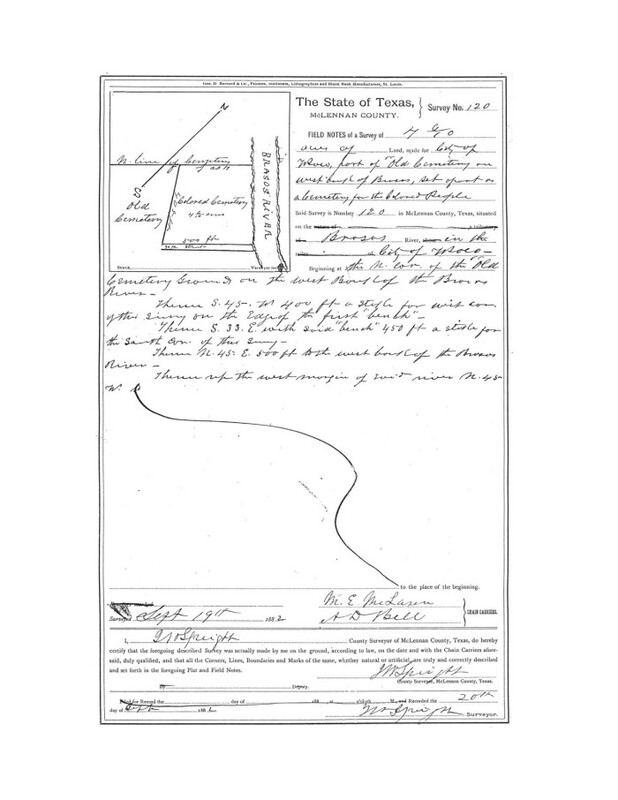 Geo. D. Barnard & Co., Printers, Stationers, Lithographers and Blank Book Manufacturers, St. Louis.
N
N. line of Cemetery
Old Cemetery
Colored Cemetery
4 acres
500 ft
BRASOS RIVER
The State of Texas,
McLENNAN COUNTY.
Survey No. 120
FIELD NOTES of a Survey of 4
acres of Land, made for City of
Waco, part of "Old Cemetery on
west bank of Brasos, set apart as
a Cemetery for the Colored People
Said Survey is Number 120 in McLennan County, Texas, situated
on the
Brasos River, in the
City of Waco
Beginning at the N. cor. of the "Old
Cemetery Ground on the west Bank of the Brasos
River-
Thence S. 45- W 400 ft a stake for west cor
of this survey on the Edge of the first "bench"-
Thence S. 33. E. with said "bench" 450 ft a stake for
the South Cor. of this Survey-
Thence N. 45- E. 500 ft to the west bank of the Brasos
River-
Thence up the west margin of said river N. 45-
W.
to the place of the beginning.
Surveyed Sept 19th 1882
M. E. McLaren
A D Bell
CHAIN CARRIERS.
I, J W Speight County Surveyor of McLennan County, Texas, do hereby
certify that the foregoing described Survey was actually made by me on the ground, according to law, on the date and with the Chain Carriers afore-
said, duly qualified, and that all the Corners, Lines, Boundaries and Marks of the same, whether natural or artificial, are truly and correctly described
and set forth in the foregoing Plat and Field Notes.
J W Speight
County Surveyor, McLennan County, Texas.
By Deputy.
Filed for Record the day of 188 at o'clock M., and Recorded the 20th
day of Sept 1882
J W Speight Surveyor.